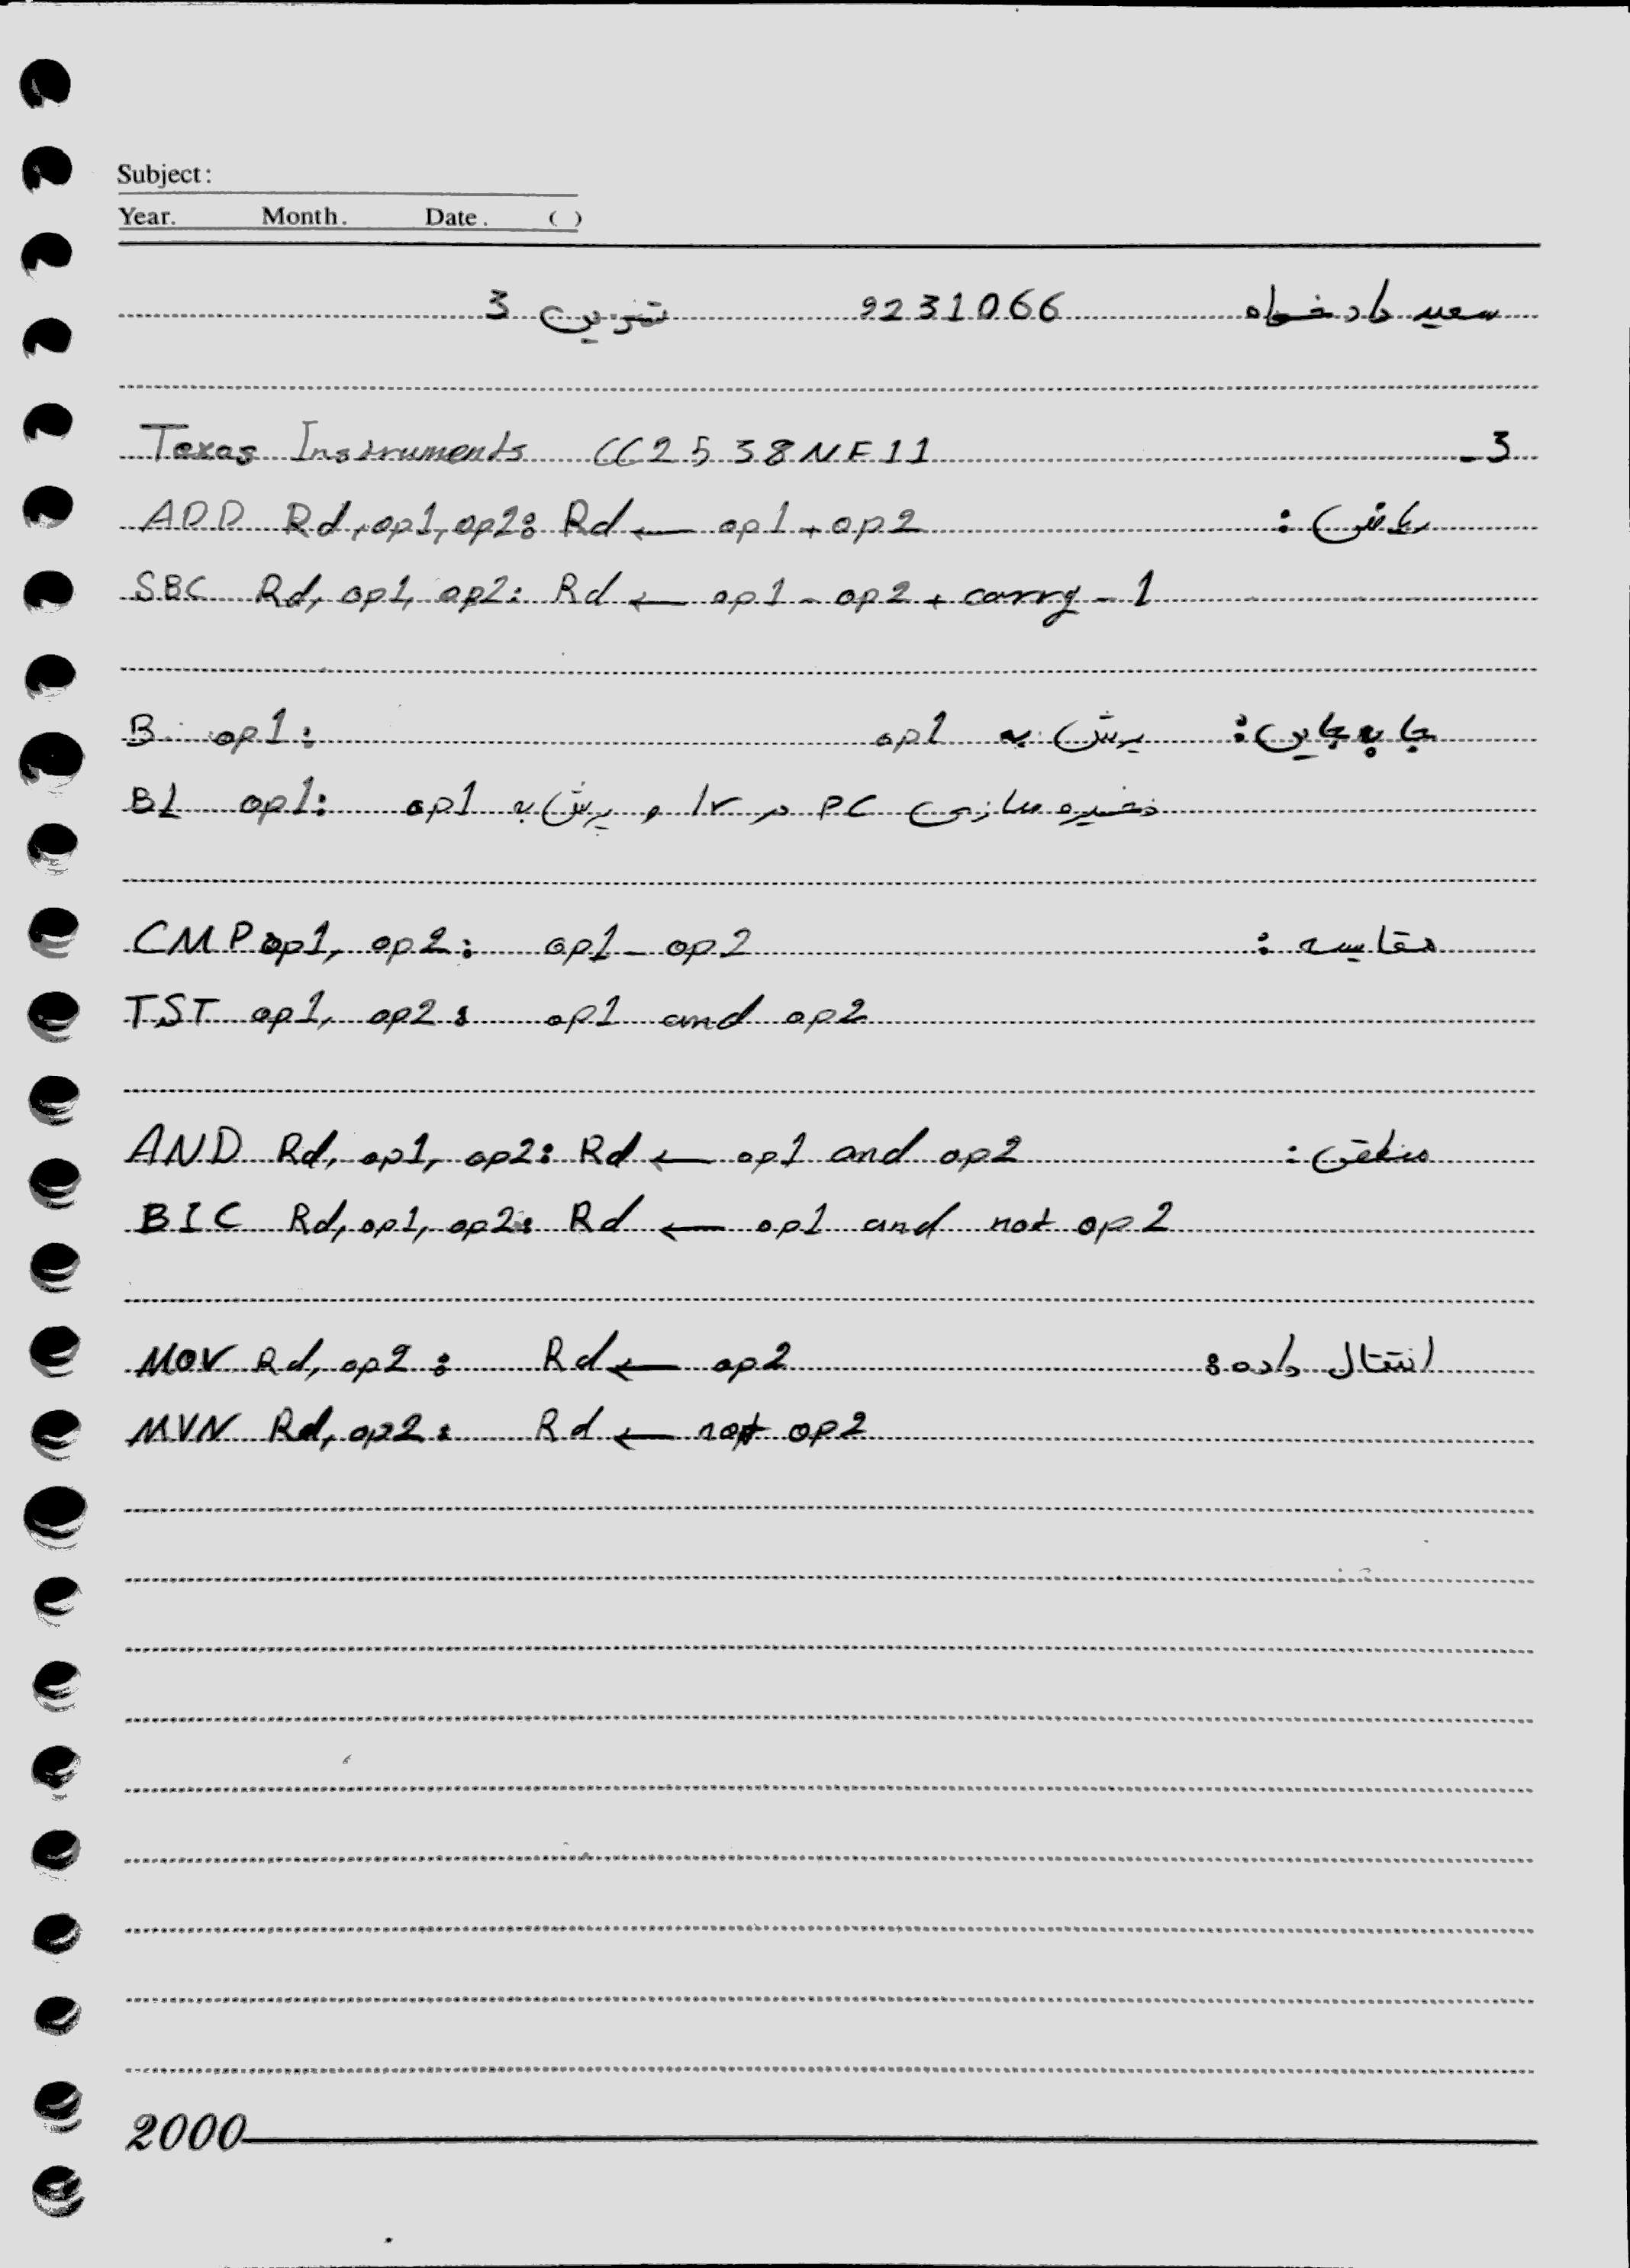 Subject:
Year. Month. Date. ( )
سعید دادخواه 9231066 تمرین 3
3- Texas Instruments CC2538NF11
ریاضی: ADD Rd, op1, op2: Rd ← op1 + op2
SBC Rd, op1, op2: Rd ← op1 - op2 + carry - 1
جا به جایی: B op1: پرش به op1
BL op1: ذخیره سازی PC در lr و پرش به op1
مقایسه: CMP op1, op2: op1 - op2
TST op1, op2: op1 and op2
منطقی: AND Rd, op1, op2: Rd ← op1 and op2
BIC Rd, op1, op2: Rd ← op1 and not op2
انتقال داده: MOV Rd, op2: Rd ← op2
MVN Rd, op2: Rd ← not op2
2000